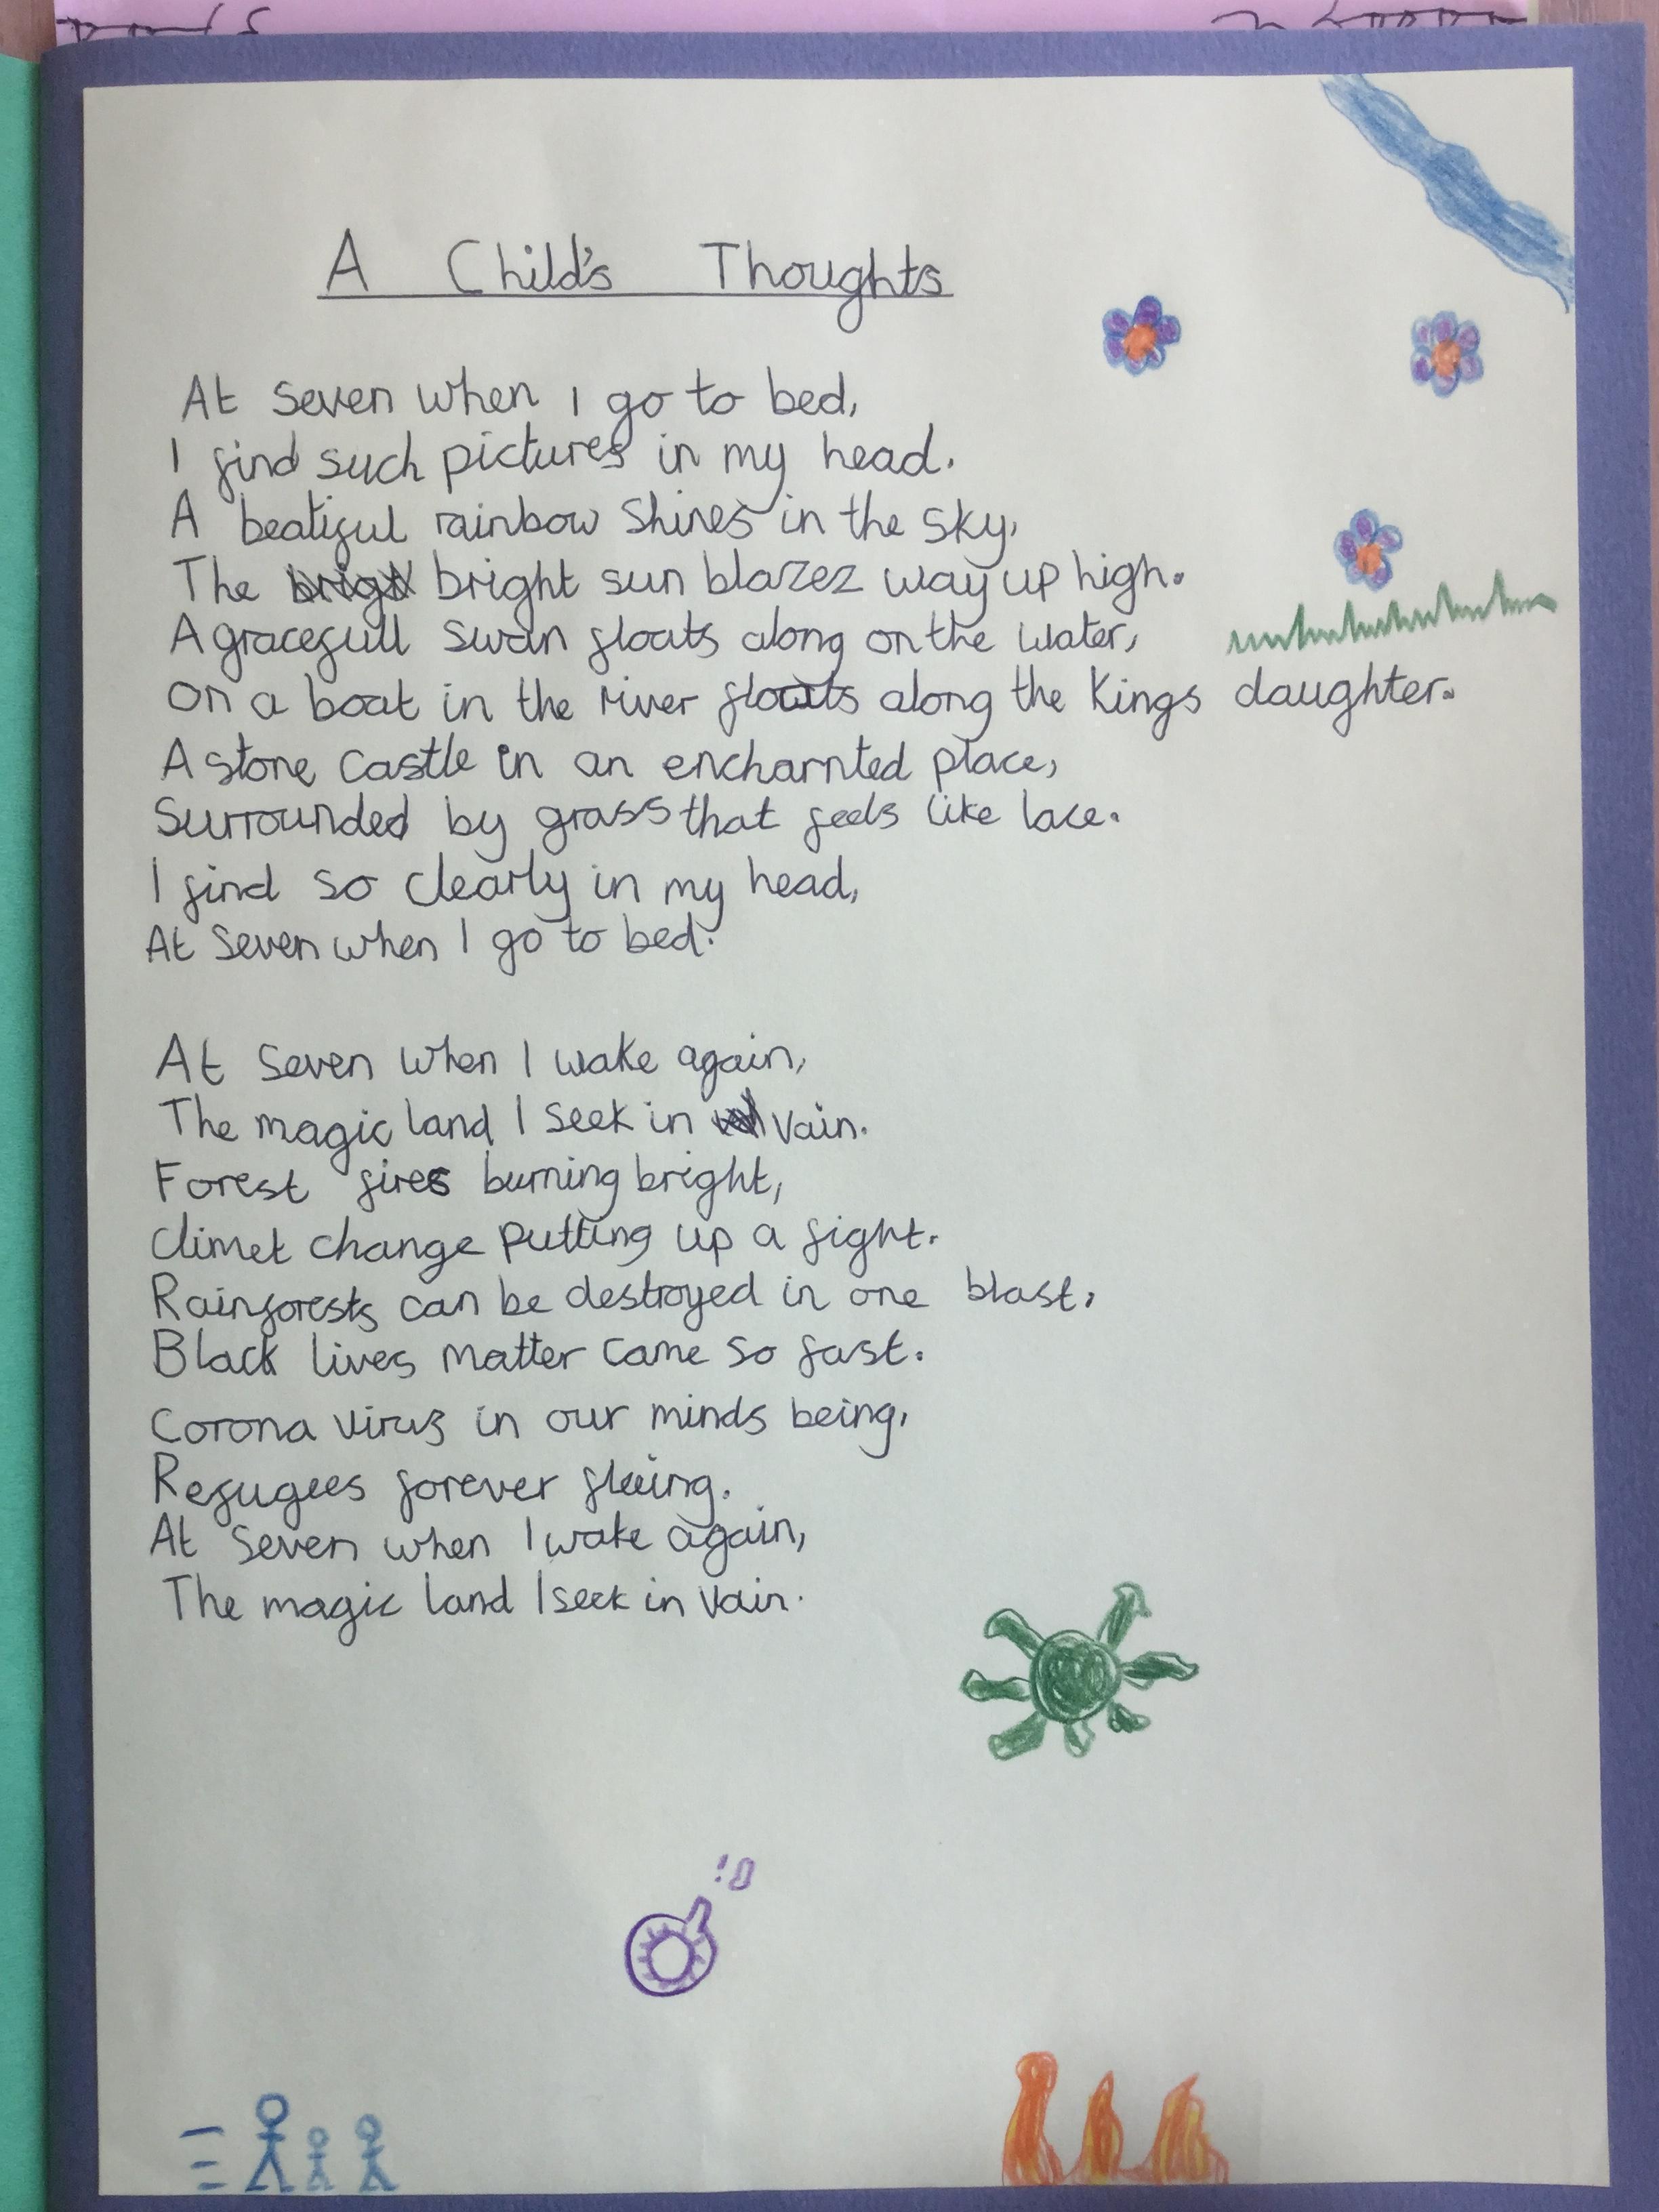 A Child's Thoughts
At seven when I go to bed,
I find such pictures in my head.
A beatiful rainbow shines in the sky,
The bright sun blazez way up high.
A gracefull swan floats along on the water,
On a boat in the river floats along the Kings daughter.
A stone castle in an encharnted place,
Surrounded by grass that feels like lace.
I find so clearly in my head,
At seven when I go to bed.
At seven when I wake again,
The magic land I seek in vain.
Forest fires burning bright,
Climet change putting up a fight.
Rainforests can be destroyed in one blast,
Black lives matter came so fast.
Corona virus in our minds being,
Refugees forever fleeing.
At seven when I wake again,
The magic land I seek in vain.